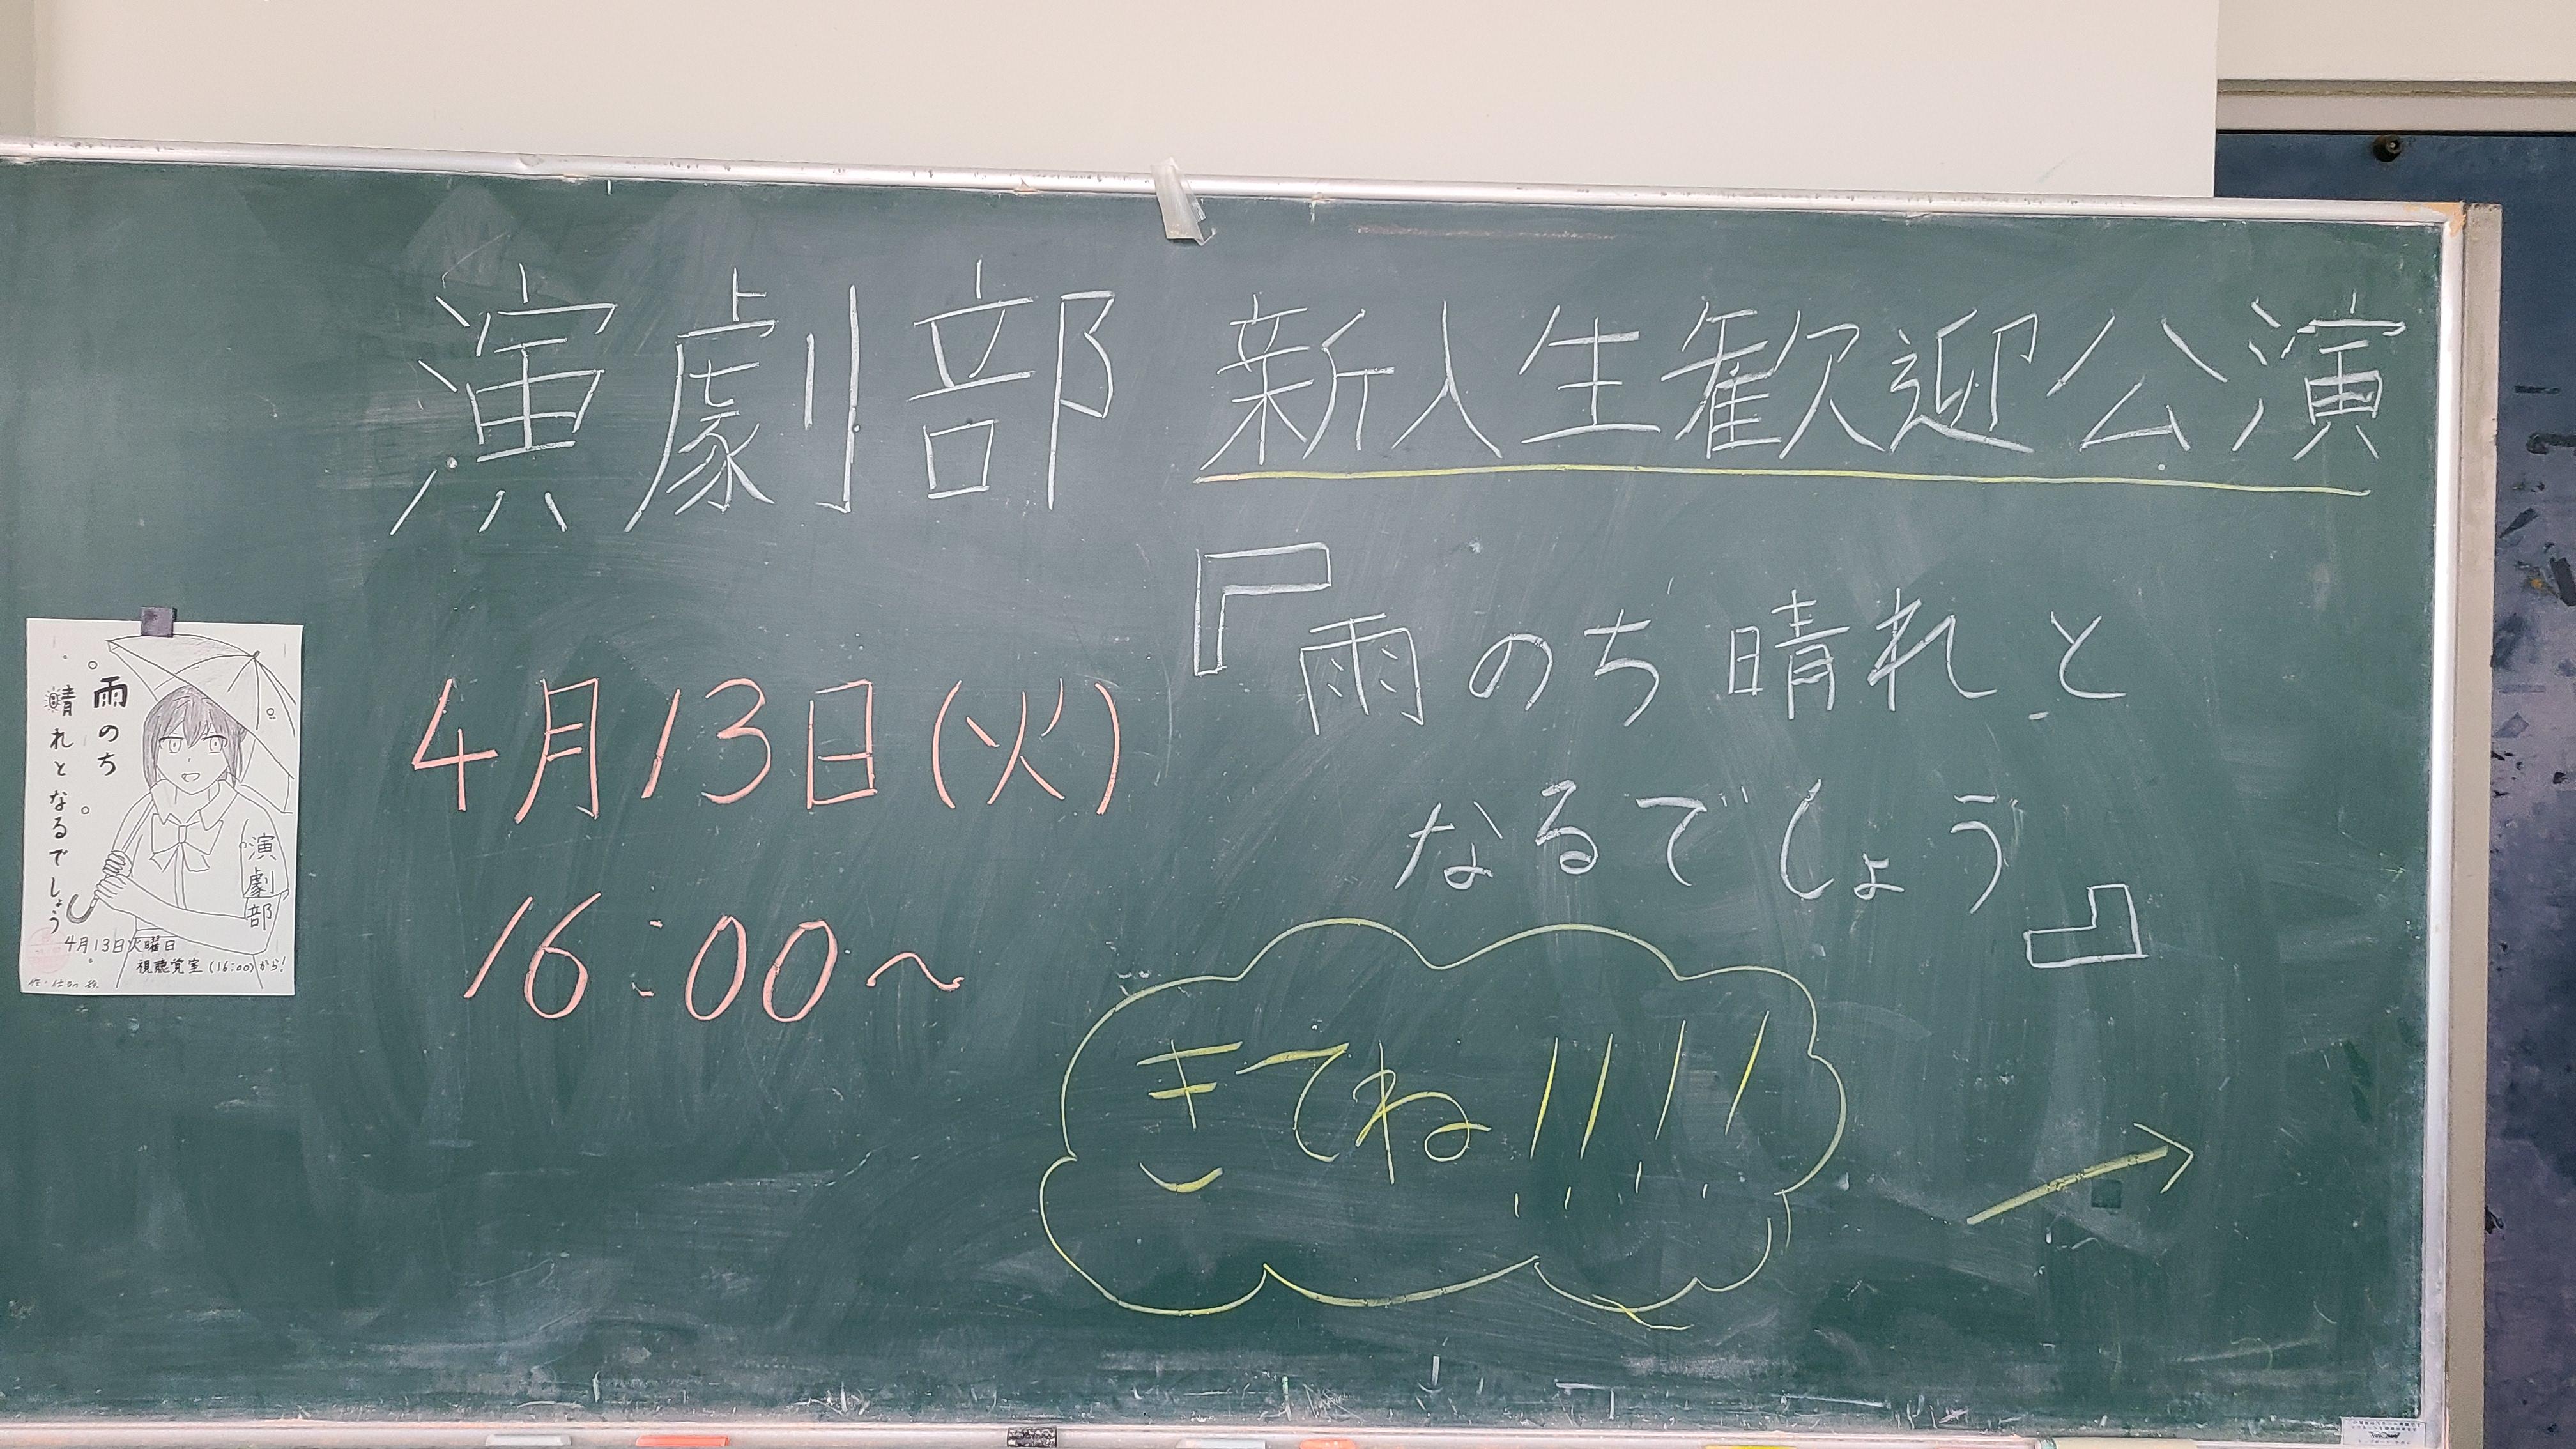 演劇部 新入生歓迎公演
『雨のち晴れと
なるでしょう』
4月13日(火)
16:00～
きてね!!!!
→
雨のち
晴れとなるでしょう
演劇部
4月13日火曜日
視聴覚室(16:00)から!